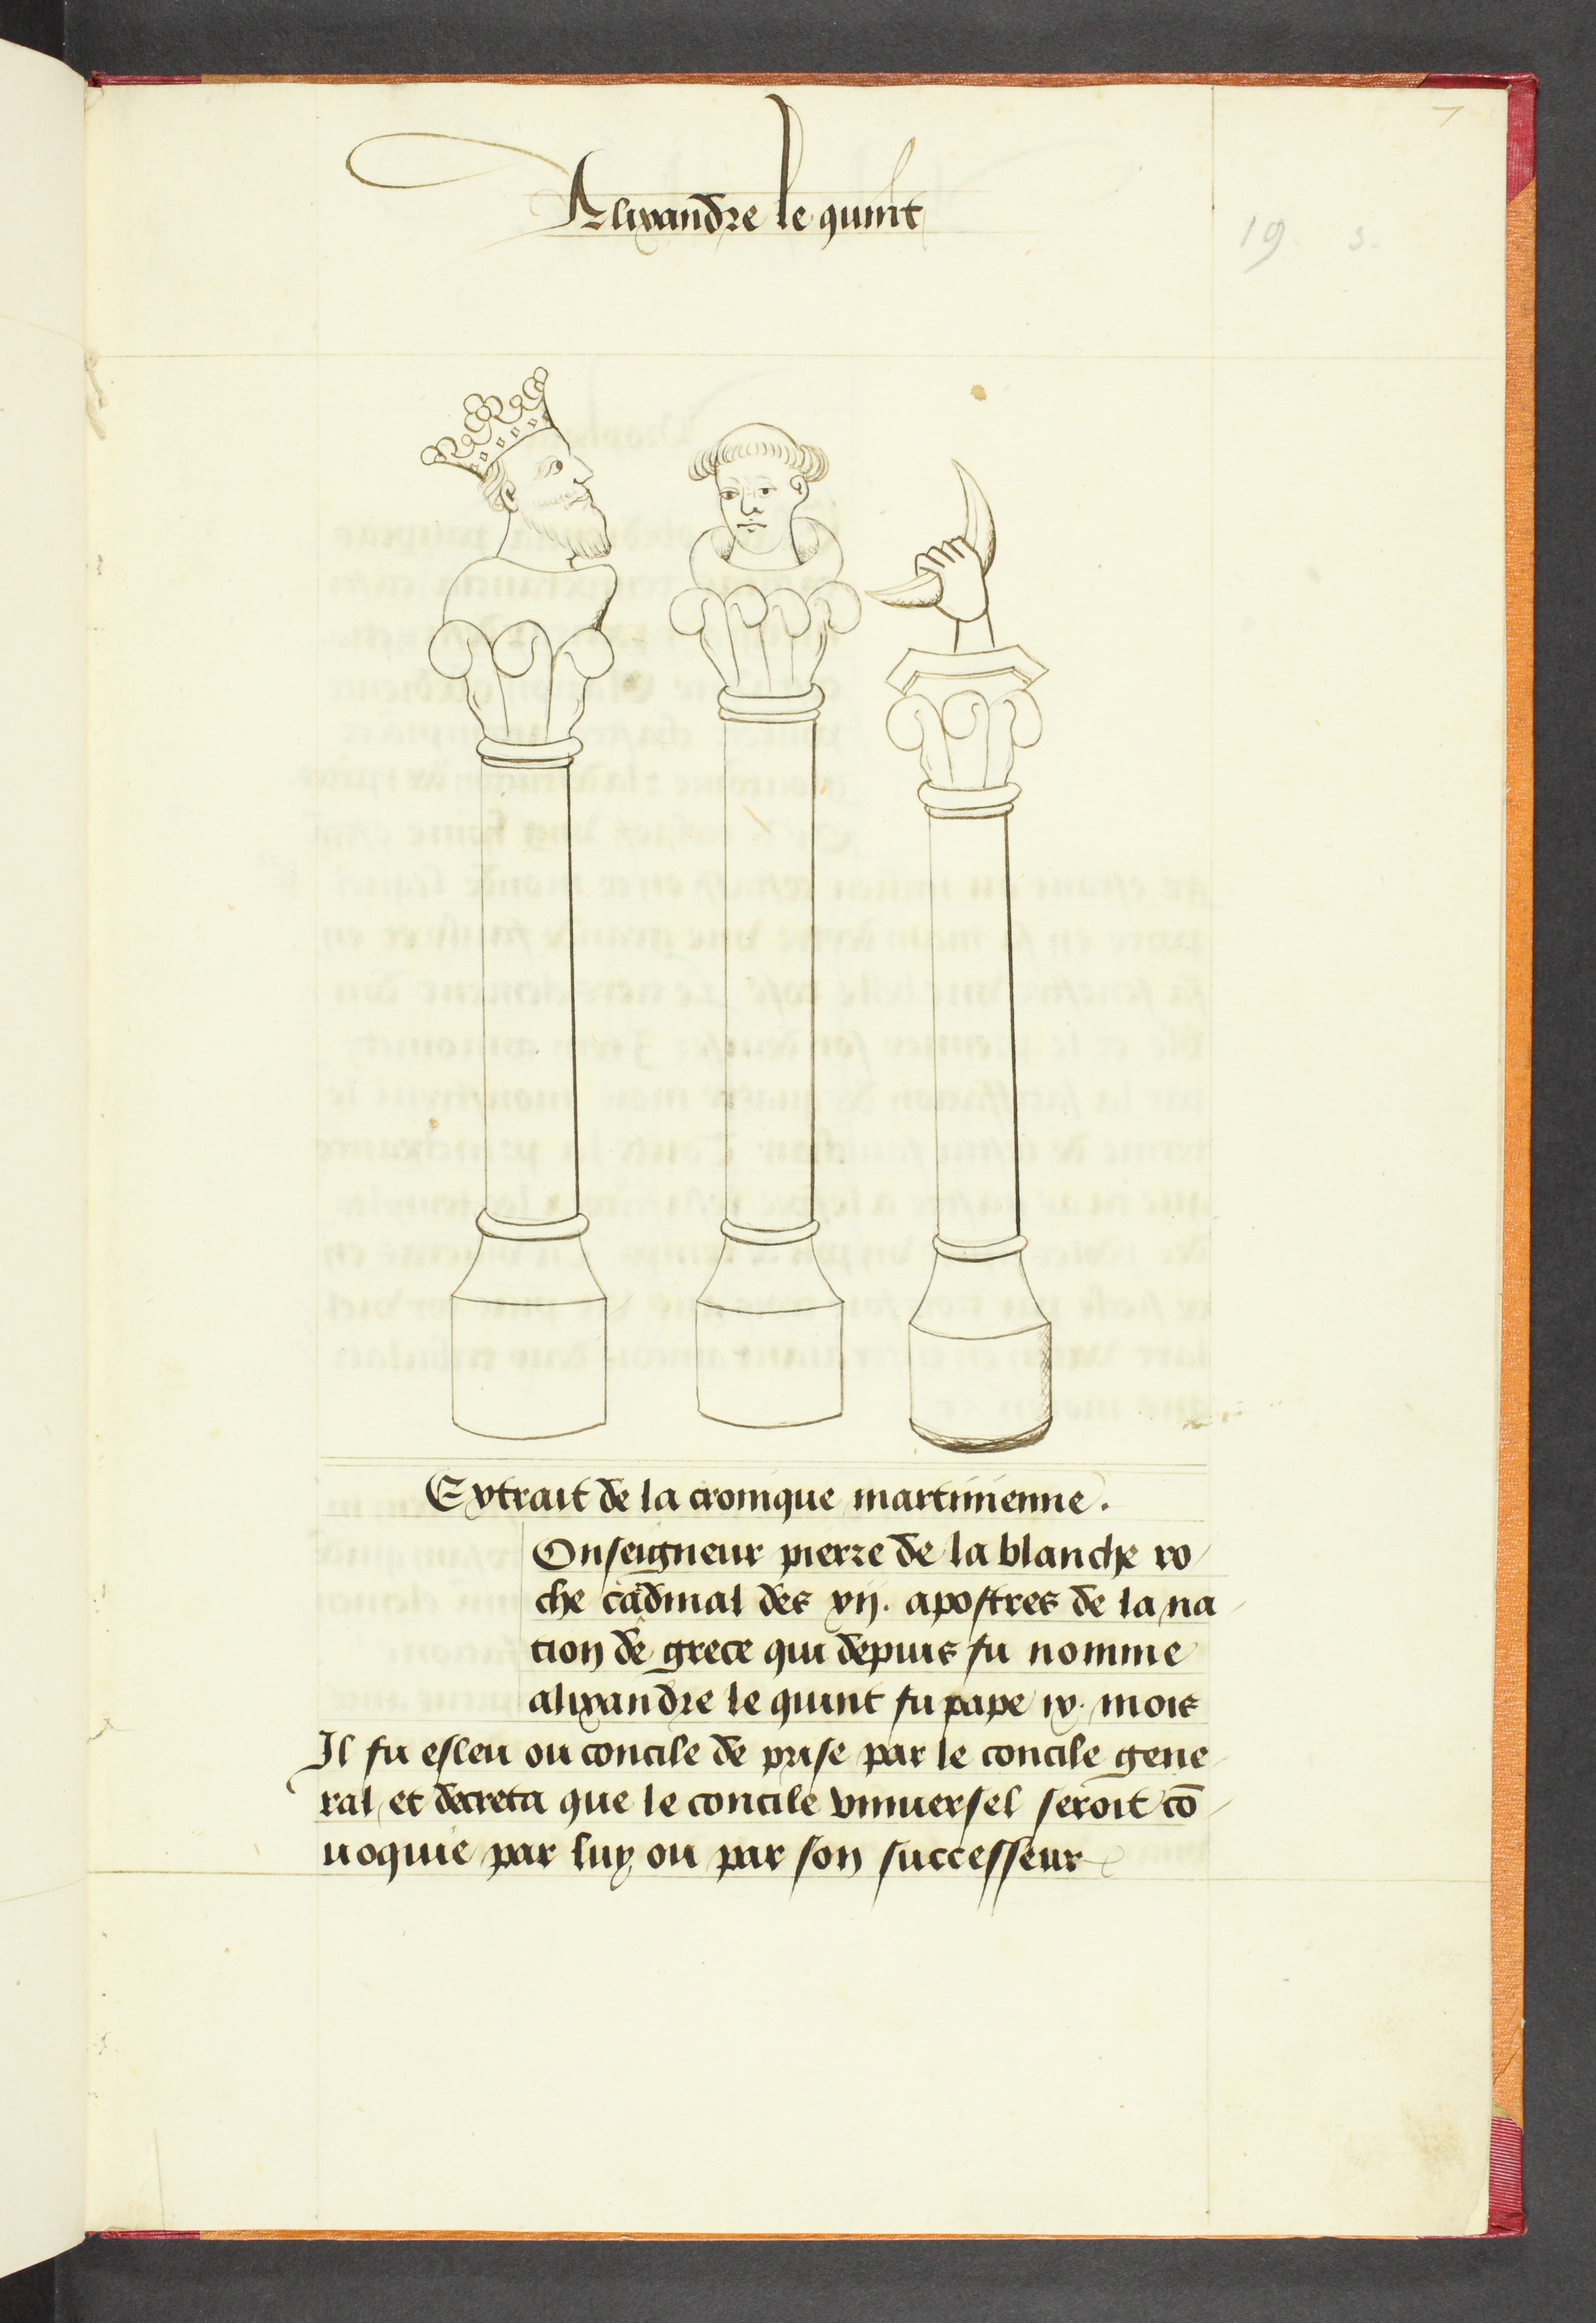 Alixandre le quint
19 s.
Extrait de la cronique martinienne.
Onseigneur pierre de la blanche ro
che cad̄inal des xij. apostres de la na
cion de grece qui depuis fu nomme
alixandre le quint fu pape ix. mois
Il fu esleu ou concile de prise par le concile gene
ral et decreta que le concile vniuersel seroit cō
uoquie par luy ou par son successeur